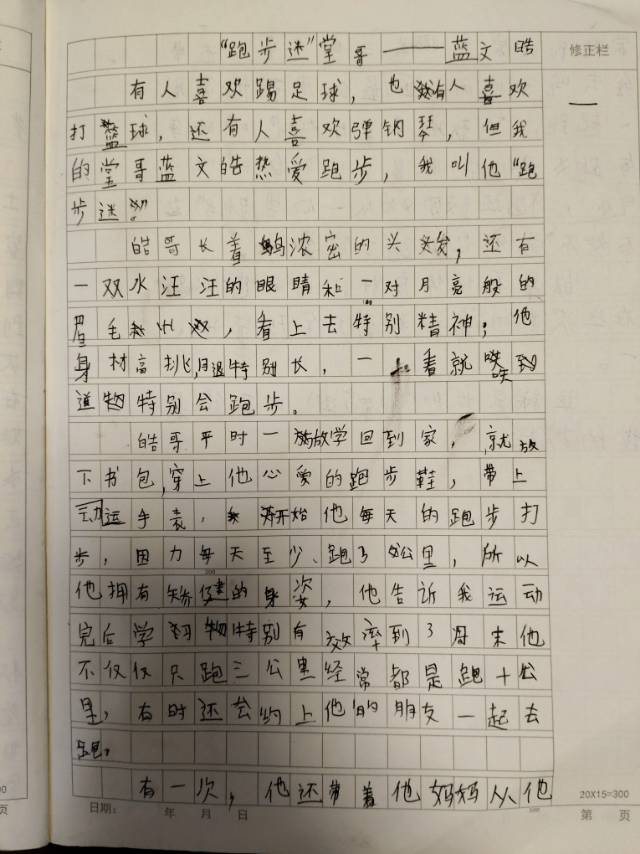 “跑步迷”堂哥——蓝文皓
修正栏
有人喜欢踢足球，也有人喜欢
打篮球，还有人喜欢弹钢琴，但我
的堂哥蓝文皓热爱跑步，我叫他“跑
步迷”。
皓哥长着浓密的头发，还有
一双水汪汪的眼睛和一对月亮般的
眉毛，看上去特别精神；他
身材高挑，腿特别长，一看就
道特别会跑步。
皓哥平时一放学回到家，就放
下书包，穿上他心爱的跑步鞋，带上
运动手表，开始他每天的跑步打
步，因为每天至少、跑了公里，所以
他拥有矫健的身姿，他告诉我运动
完后学习特别有效率到了周末他
不仅仅只跑三公里经常都是跑十公
里，有时还会约上他的朋友一起去
跑。
有一次，他还带着他妈妈从他
日期： 年 月 日
20X15=300
第 页
00
页